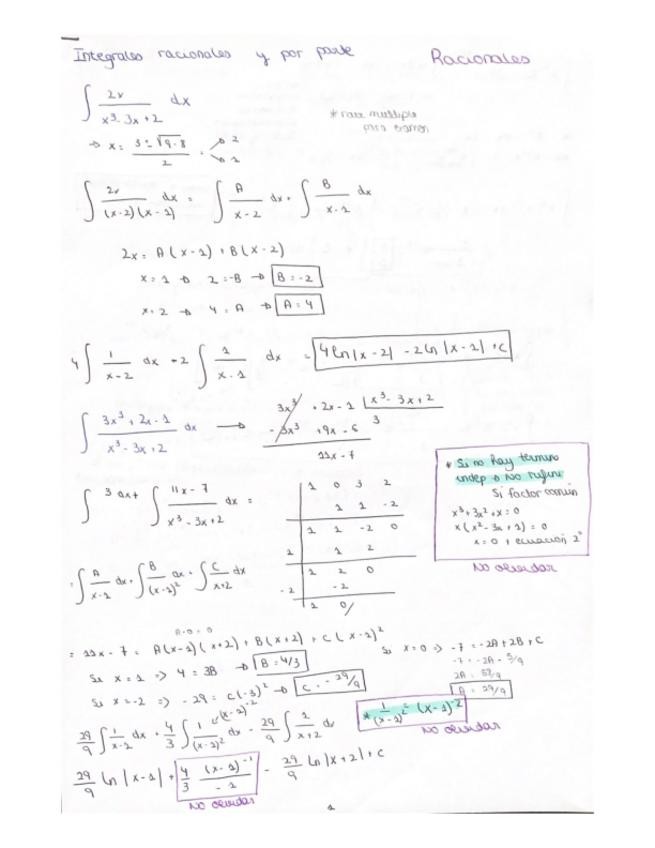 Integrales racionales y por parte Racionales
∫ 2x / (x³ - 3x + 2) dx
* raíz múltiple
para examen
→ x = (3 ± √(9-8)) / 2 → 2
→ 1
∫ 2x / ((x-2)(x-1)) dx = ∫ A / (x-2) dx + ∫ B / (x-1) dx
2x = A(x-1) + B(x-2)
x = 1 → 2 = -B → B = -2
x = 2 → 4 = A → A = 4
4 ∫ 1 / (x-2) dx + 2 ∫ 1 / (x-1) dx = 4 ln|x-2| - 2 ln|x-1| + C
∫ (3x³ + 2x - 1) / (x³ - 3x + 2) dx →
3x³ + 2x - 1 | x³ - 3x + 2
- 3x³ + 9x - 6 3
11x - 7
* Si no hay término
indep → No rufini
Si factor común
x³ + 3x² + x = 0
x (x² - 3x + 1) = 0
x = 0 + ecuación 2°
No olvidar
∫ 3 dx + ∫ (11x - 7) / (x³ - 3x + 2) dx =
1 0 3 2
1 1 -2
1 1 -2 0
1 1 2
1 2 0
-2 -2
1 0/
= ∫ A / (x-1) dx + ∫ B / (x-1)² dx + ∫ C / (x+2) dx
= 11x - 7 = A(x-1)(x+2) + B(x+2) + C(x-1)²
Si x = 1 => 4 = 3B → B = 4/3
Si x = -2 => -29 = C(-3)² → C = -29/9
Si x = 0 => -7 = -2A + 2B + C
A = 29/9
29/9 ∫ 1 / (x-2) dx + 4/3 ∫ 1 / (x-1)² dx - 29/9 ∫ 1 / (x+2) dx
(x-1)⁻²
* 1 / (x-1)² = (x-1)⁻²
No olvidar
29/9 ln|x-1| + 4/3 (x-1)⁻¹ / -1 - 29/9 ln|x+2| + C
No olvidar
1